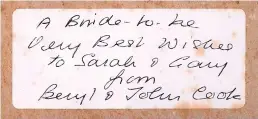 A Bride-to-be
Very Best Wishes
to Sarah & Gary
from
Beryl & John Cook